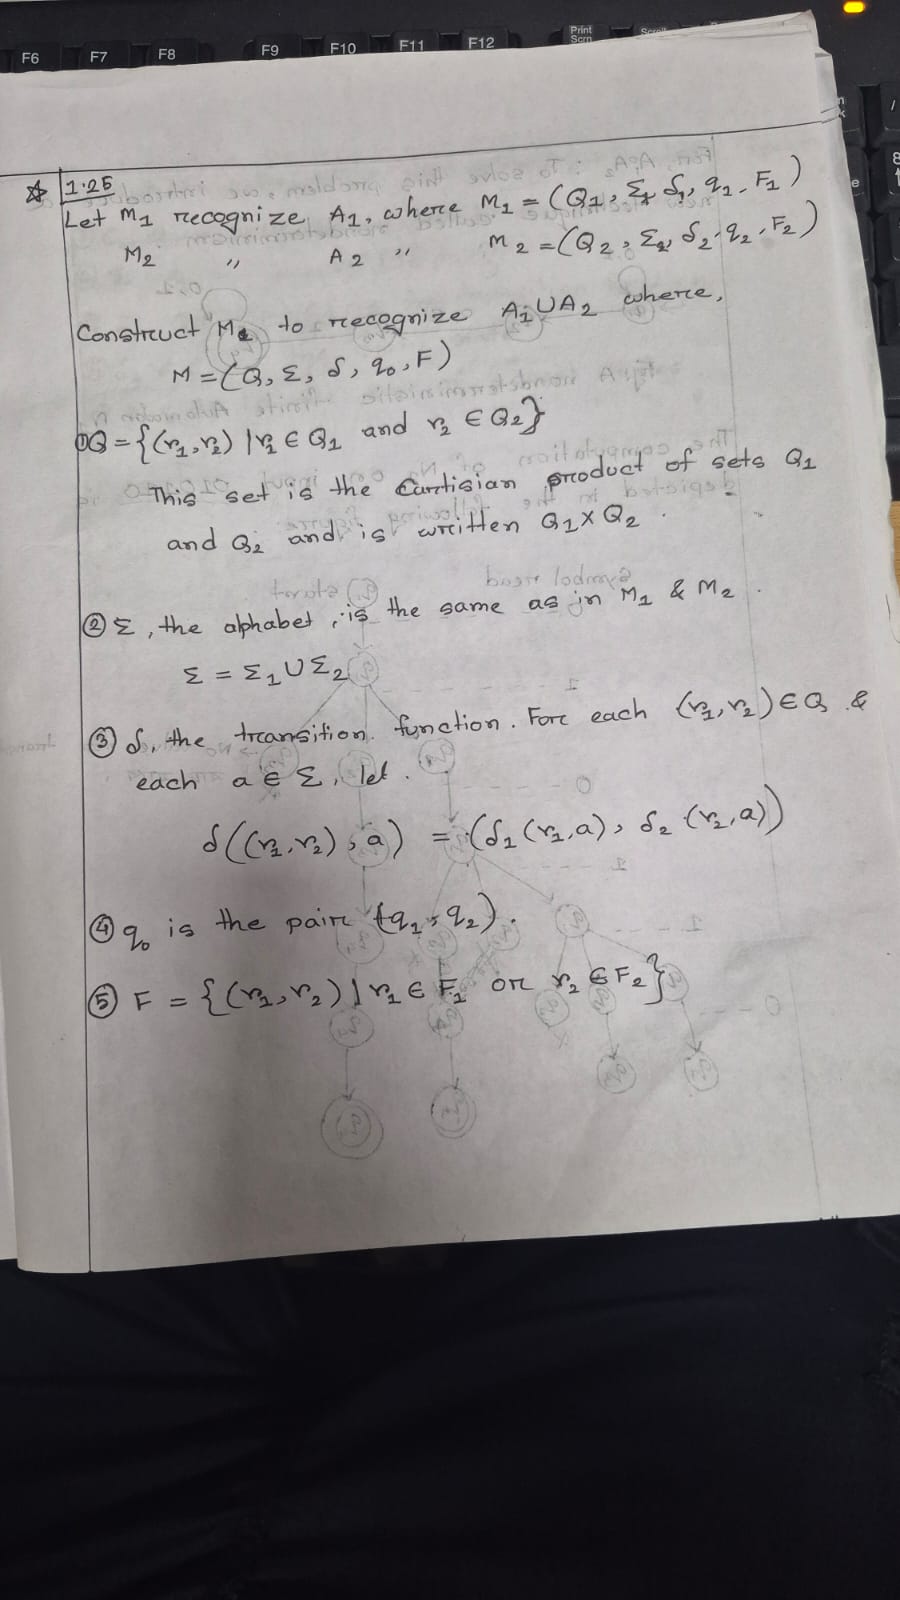 F6 F7 F8 F9 F10 F11 F12 Print Scrn
1.25
Let M1 recognize A1, where M1 = (Q1, Σ1, δ1, q1, F1)
M2 〃 A2 〃 M2 = (Q2, Σ2, δ2, q2, F2)
Construct M to recognize A1 ∪ A2 where,
M = (Q, Σ, δ, q0, F)
① Q = {(r1, r2) | r1 ∈ Q1 and r2 ∈ Q2}
This set is the Cartisian product of sets Q1
and Q2 and is written Q1 X Q2.
② Σ, the alphabet, is the same as in M1 & M2.
Σ = Σ1 ∪ Σ2
③ δ, the transition function. For each (r1, r2) ∈ Q &
each a ∈ Σ, let
δ((r1, r2), a) = (δ1(r1, a), δ2(r2, a))
④ q0 is the pair (q1, q2).
⑤ F = {(r1, r2) | r1 ∈ F1 or r2 ∈ F2}